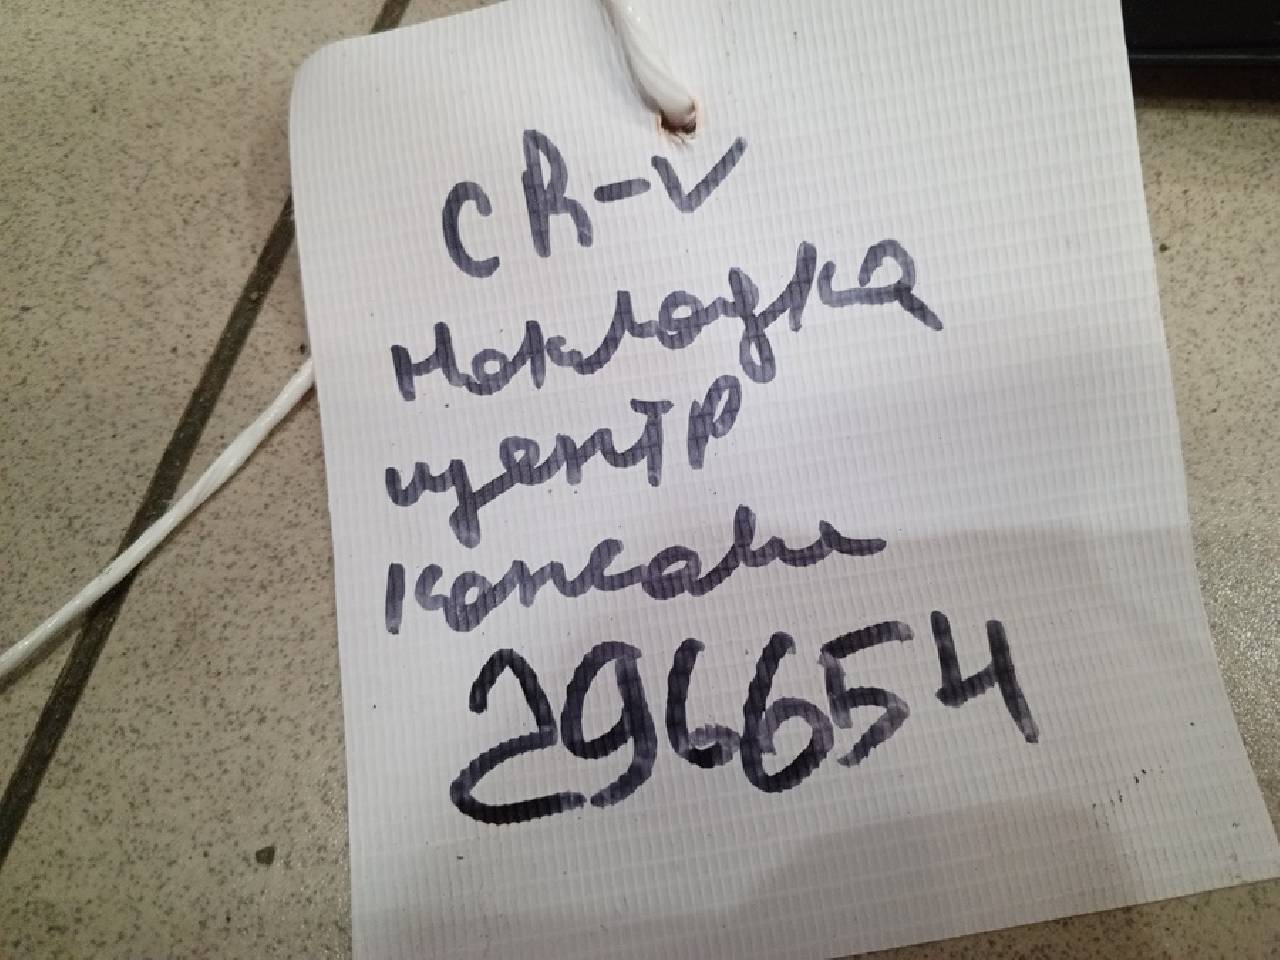 CR-V
Накладка
центр
консоли
296654